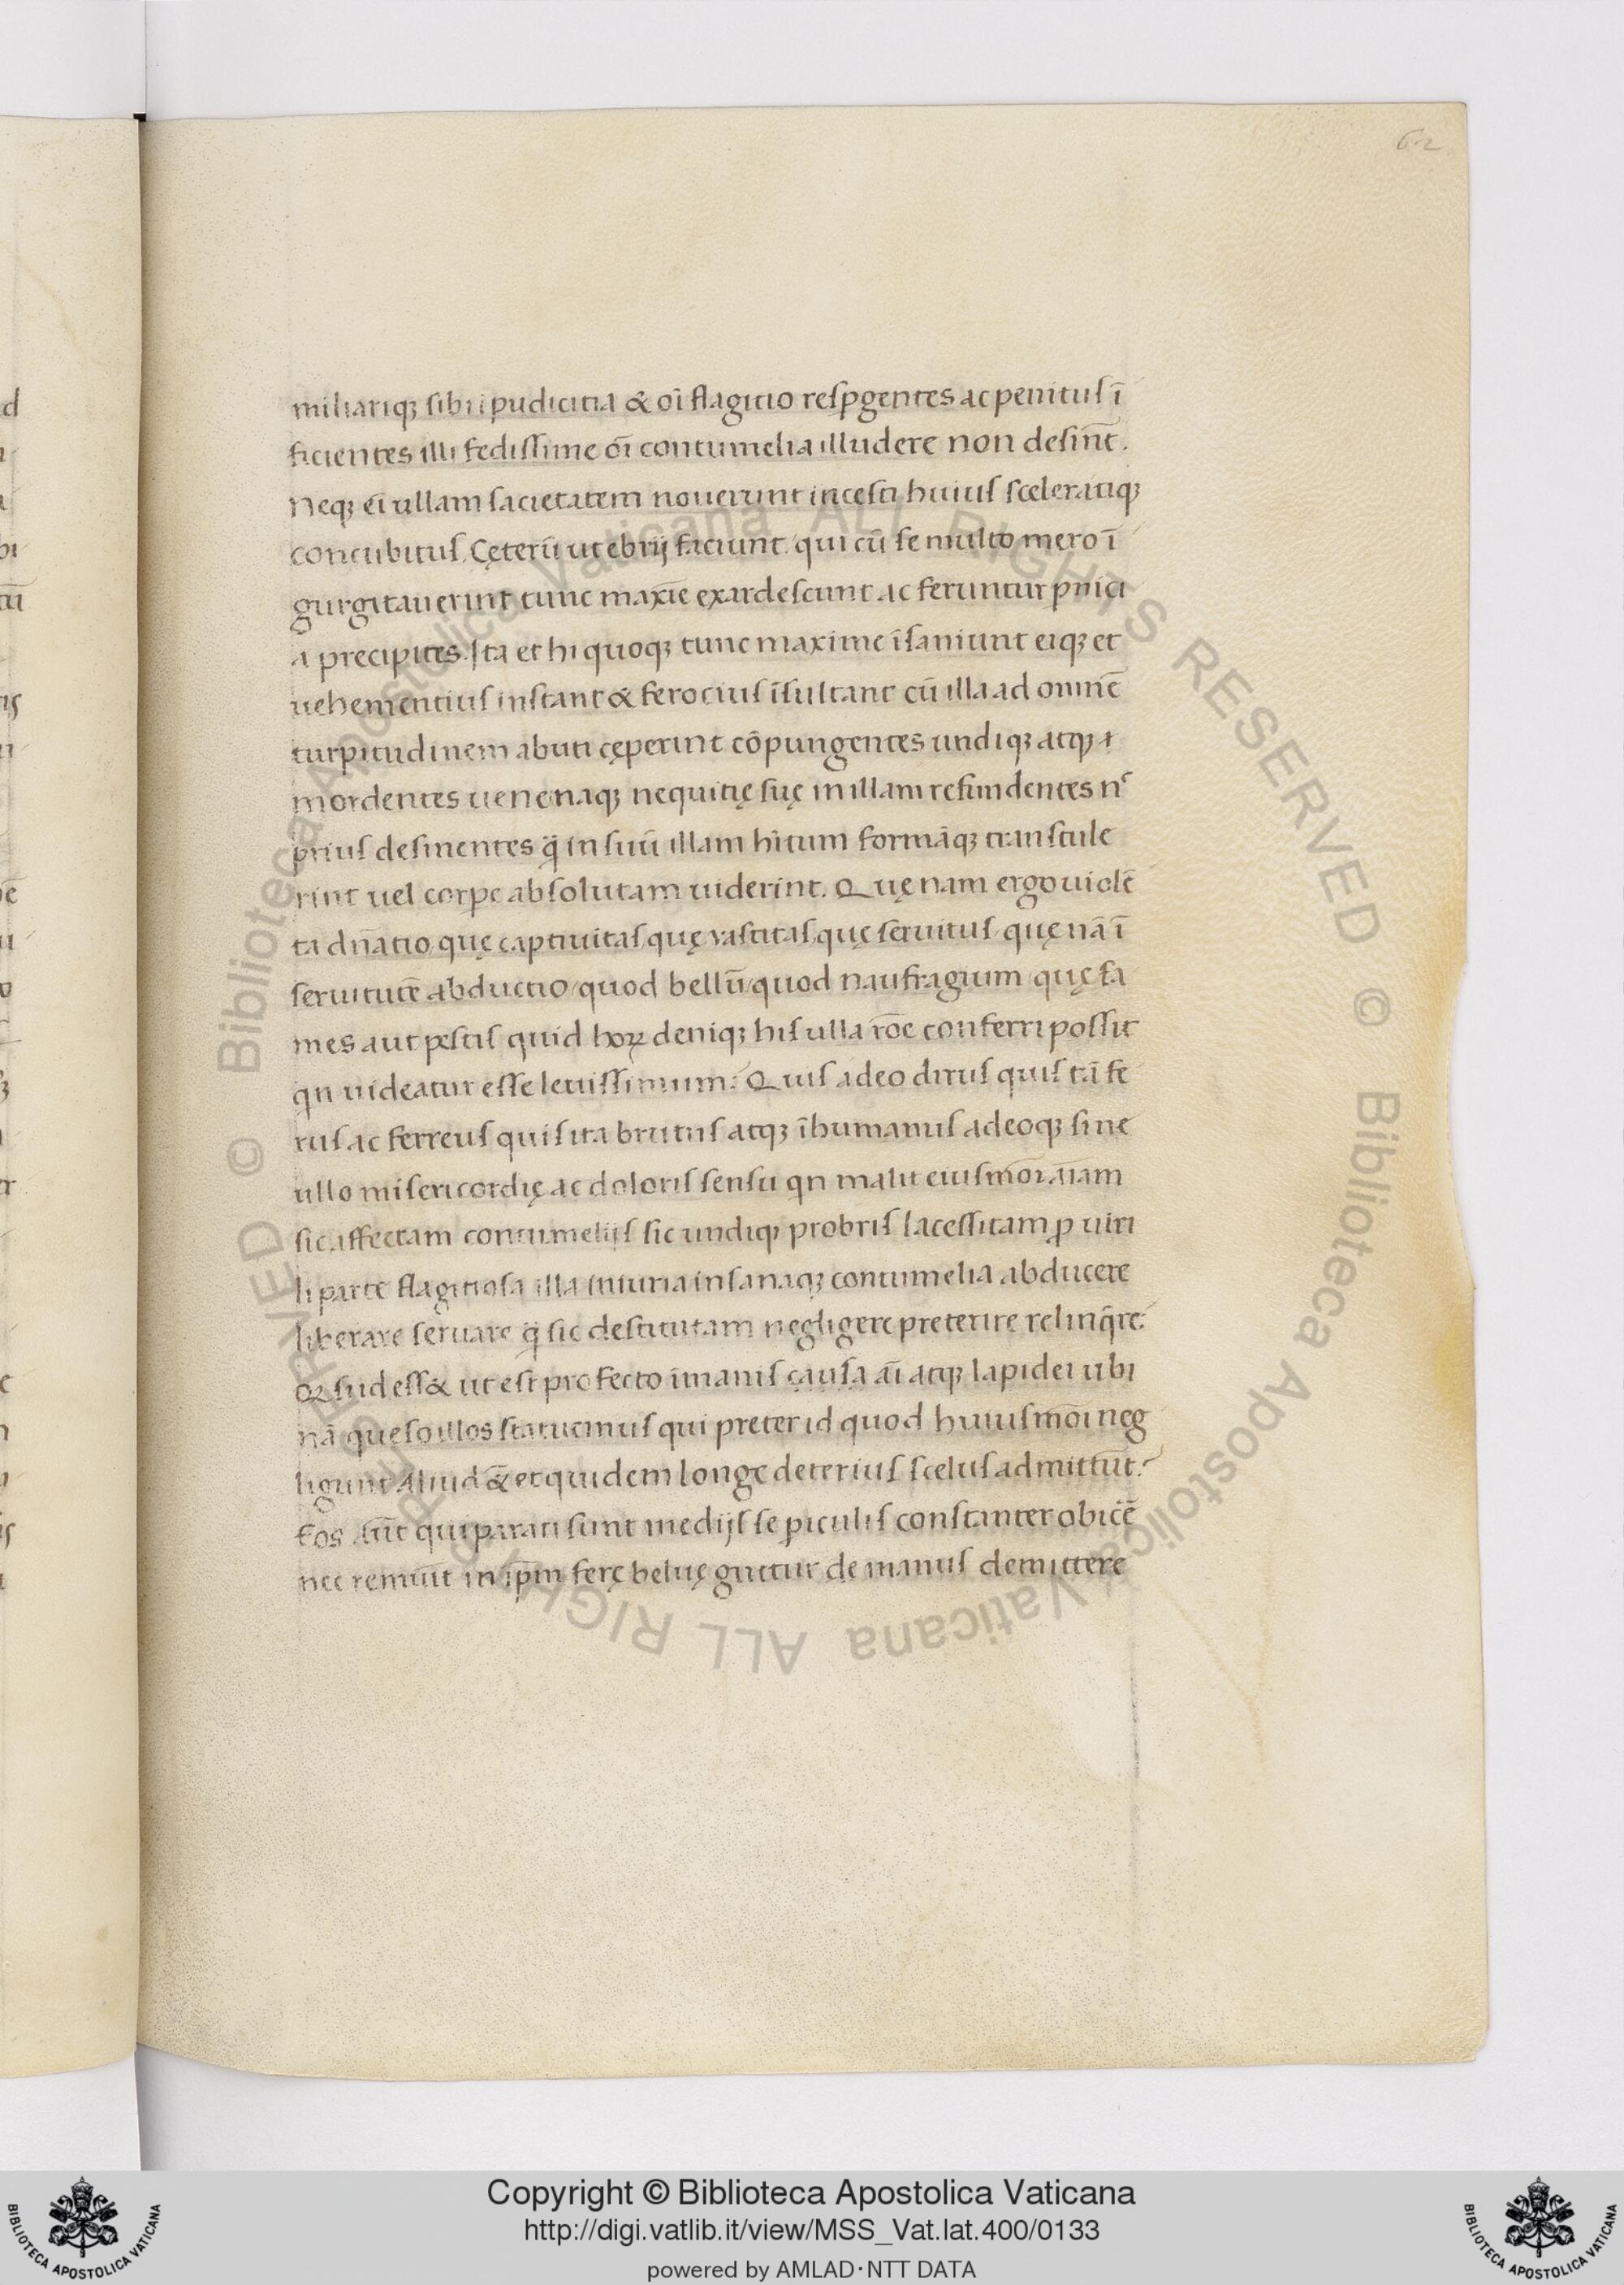 62
miliariq; sibi ipudicitia & oī flagitio resp̱gentes ac penitus ī
ficientes illi fedissime oī contumelia illudere non desint̄.
Neq; ei ullam sacietatem noverunt incesti huius sceleratiq;
concubitus. Cęterū ut ebrij faciunt qui cū se multo mero ī
gurgitauerint tunc maxīe exardescunt ac feruntur p̱nici
a precipites. Ita et hi quoq; tunc maxime īsaniunt eiq; et
uehementius instant & ferocius īsultant cū illa ad omnē
turpitudinem abuti cęperint cōpungentes undiq; atq;
mordentes uenenaq; nequitię suę in illam refundentes n
prius desinentes q̄ in suū illam hītum formāq; transtule
rint uel corpe absolutam uiderint. Quęnam ergo uiolē
ta dn̄atio quę captiuitas quę vastitas quę seruitus quę nā ī
seruitutē abductio/quod bellū/quod naufragium quę fa
mes aut pestis quid hoꝝ deniq; his ulla rōe conferri possit
qn uideatur esse leuissimum. Quis adeo dirus quis tā fe
rus ac ferreus quis ita brutus atq; īhumanus adeoq; sine
ullo misericordię ac doloris sensu qn malit eiusmōi aīam
sic affectam contumelijs sic undiq; probris lacessitam ꝓ uiri
li parte flagitiosa illa iniuria insanaq; contumelia abducere
liberare seruare q̄ sic destitutam negligere preterire relinq̄re.
ess& ut est profecto imanis causa aī atq; lapidei ubi
nā queso illos statuemus qui preter id quod huiusmōi neg
ligunt Aliud & et quidem longe deterius scelus admittūt.
Eos aūt qui parati sunt medijs se ꝑiculis constanter obicē
nec remūt in ip̄m ferę beluę guttur de manus demittere
Copyright © Biblioteca Apostolica Vaticana
http://digi.vatlib.it/view/MSS_Vat.lat.400/0133
powered by AMLAD·NTT DATA